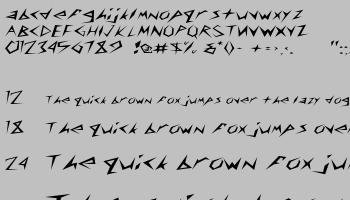 abcdefghijklmnopqrstuvwxyz
ABCDEFGHIJKLMNOPQRSTUVWXYZ
0123456789 !@#$% &*()- +=
12 The quick brown fox jumps over the lazy dog
18 The quick brown fox jumps over
24 The quick brown fox ju